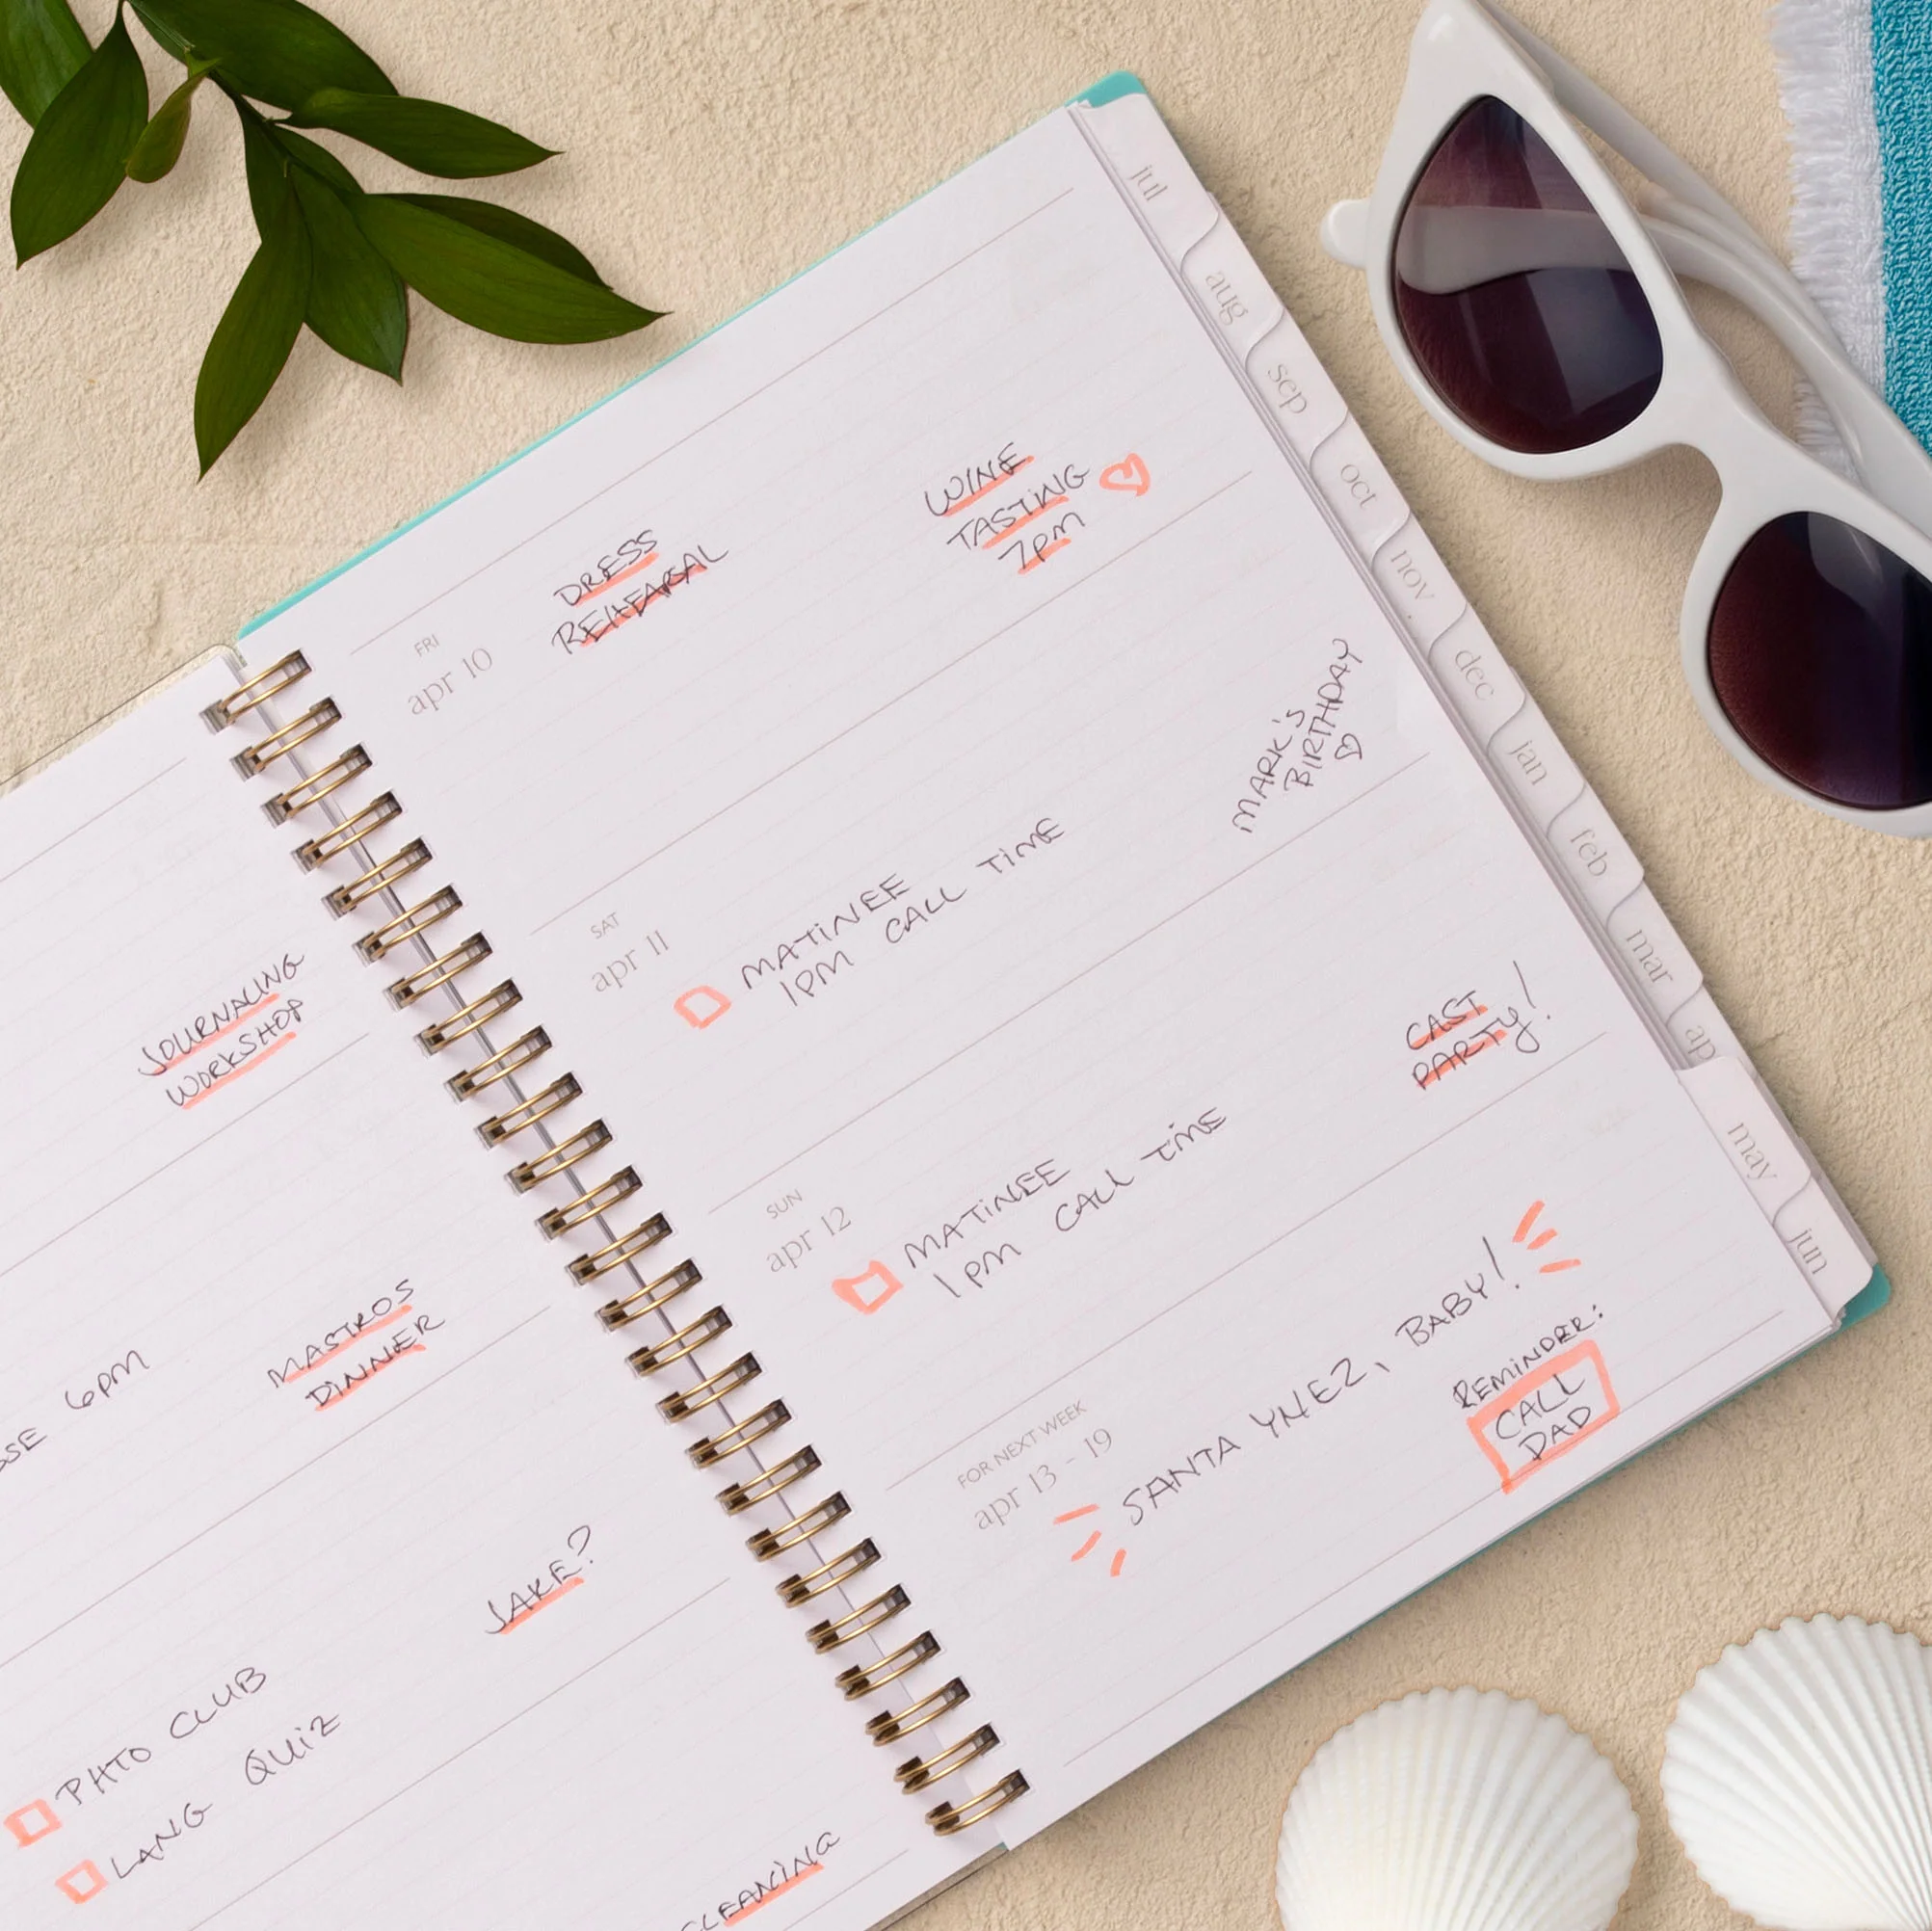 JOURNALING
WORKSHOP
6PM
MASTROS
DINNER
JAKE?
PHTO CLUB
LANG QUIZ
CLEANING
FRI
apr 10
DRESS
REHEARSAL
WINE
TASTING
7PM
SAT
apr 11
MATINEE
1PM CALL TIME
MARK'S
BIRTHDAY
SUN
apr 12
MATINEE
1PM CALL TIME
CAST
PARTY!
FOR NEXT WEEK
apr 13 - 19
SANTA YNEZ, BABY!
REMINDER:
CALL
DAD
jul
aug
sep
oct
nov
dec
jan
feb
mar
ap
may
jun